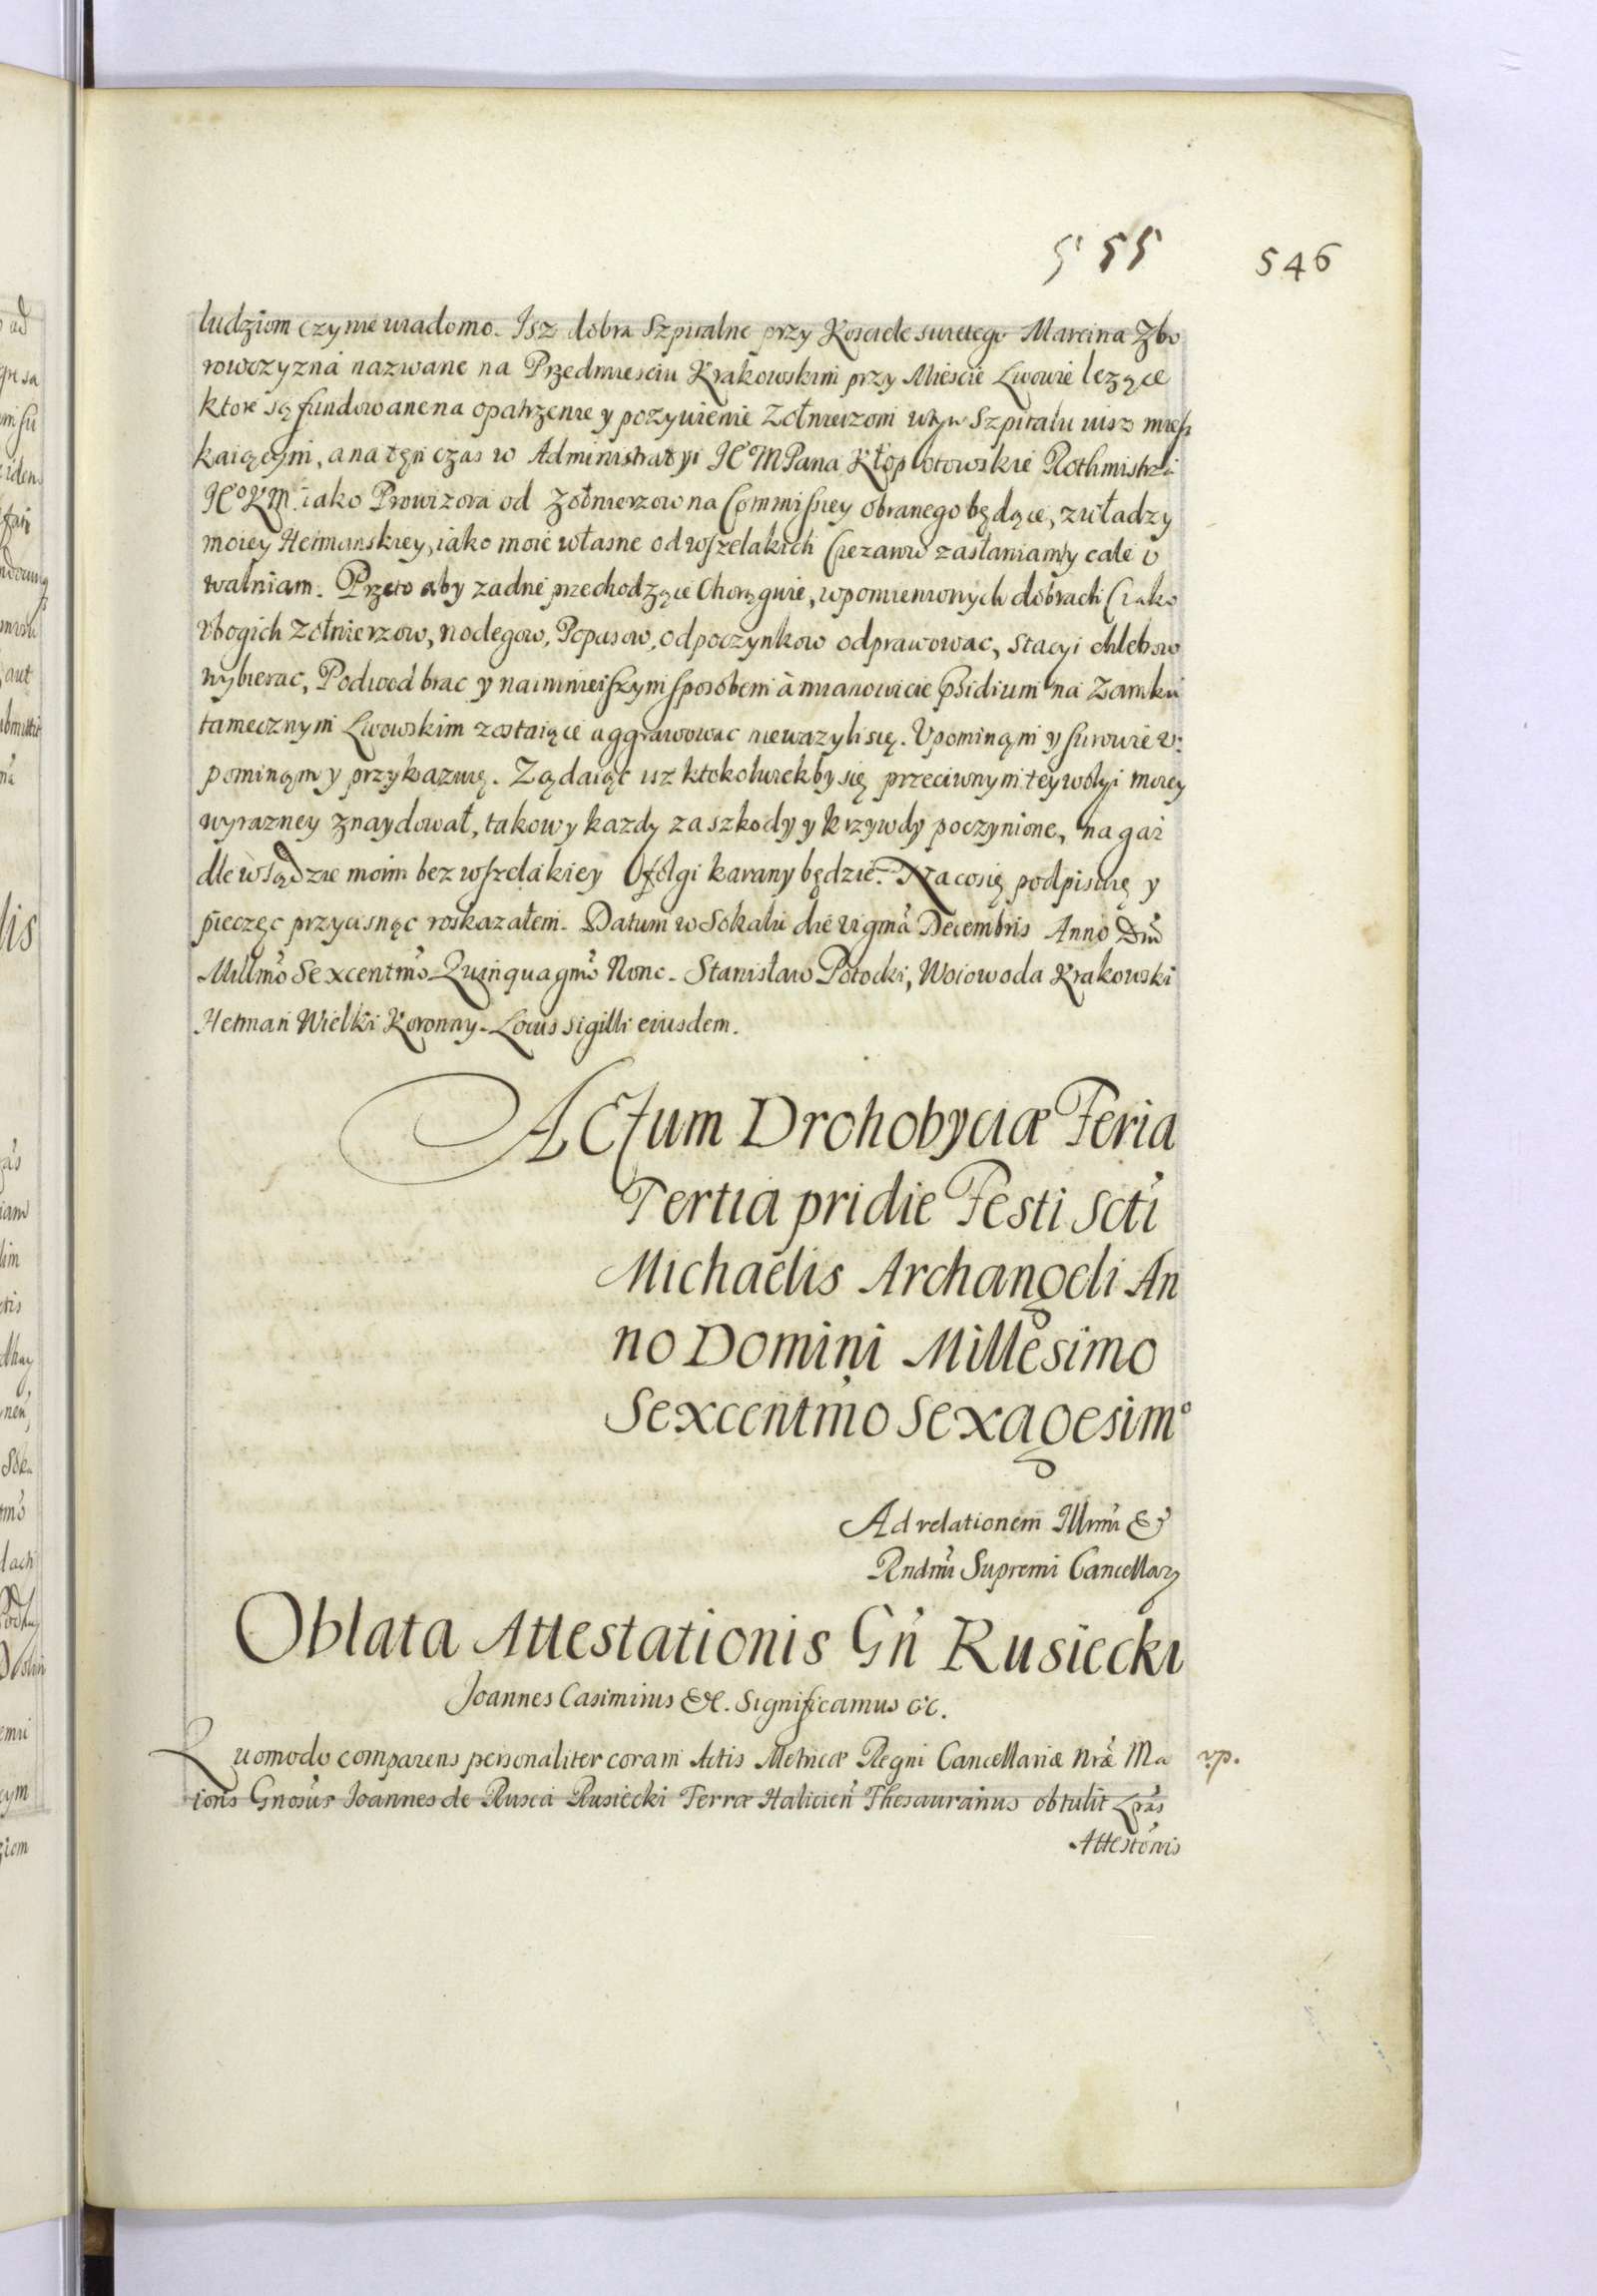 555 546
ludziom czynie wiadomo. Isz dobra Szpitalne przy Kosciele swietego Marcina Zbo
rowczyzna nazwane na Przedmiesciu Krakowskim przy Miescie Lwowie lezące
ktore są fundowane na opatrzenie y pozywienie Zołnierzom w tym Szpitalu miesz
kaiącym, a na ten czas w Administratyi JE°MPana Kłopotowskie Rothmistrza
JE°KM. iako Prowizora od Zołnierzow na Commissiey obranego będące, z władzy
moiey Hetmanskiey, iako moie własne od wszelakich Ciezarow zasłaniam y cale v
walniam. Przeto aby zadne przechodzące Chorągwie, w pomienionych dobrach iako
vbogich Zołnierzow, noclegow, Popasow, odpoczynkow odprawowac, Stacyi chlebow
wybierac, Podwod brac y naimnieiszym sposobem à mianowicie Psidium na Zamku
tamecznym Lwowskim zostaiące aggrawowac niewazyli się. Vpominąm y surowie v:
pominąm y przykazuię. Ządaiąc isz ktokolwiekby się przeciwnym tey woley moiey
wyrazney znaydował, takowy kazdy za szkody y krzywdy poczynione, na gar
dle w sądzie moim bez wszelakiey folgi karany będzie. Na co się podpisuię y
pieczęc przycisnąc roskazałem. Datum w Sokalu die vigmā Decembris Anno Dnī
Millmo Sexcentmo Quinquagmo Nono. Stanisław Potocki, Woiowoda Krakowski
Hetman Wielki Koronny. Locus sigilli eiusdem.
Actum Drohobyciæ Feria
Tertia pridie Festi Scti
Michaelis Archangeli An
no Domini Millesimo
Sexcentmo Sexagesim°
Ad relationem Illmi &
Rndmi Supremi Cancellarij
Oblata Attestationis Gn Rusiecki
Joannes Casimirus &c. Significamus &c.
Quomodo comparens personaliter coram Actis Metricæ Regni Cancellariæ nræ Ma vp.
ioris Gnosus Joannes de Rusca Rusiecki Terræ Halicien Thesaurarius obtulit Lras
Attestonis